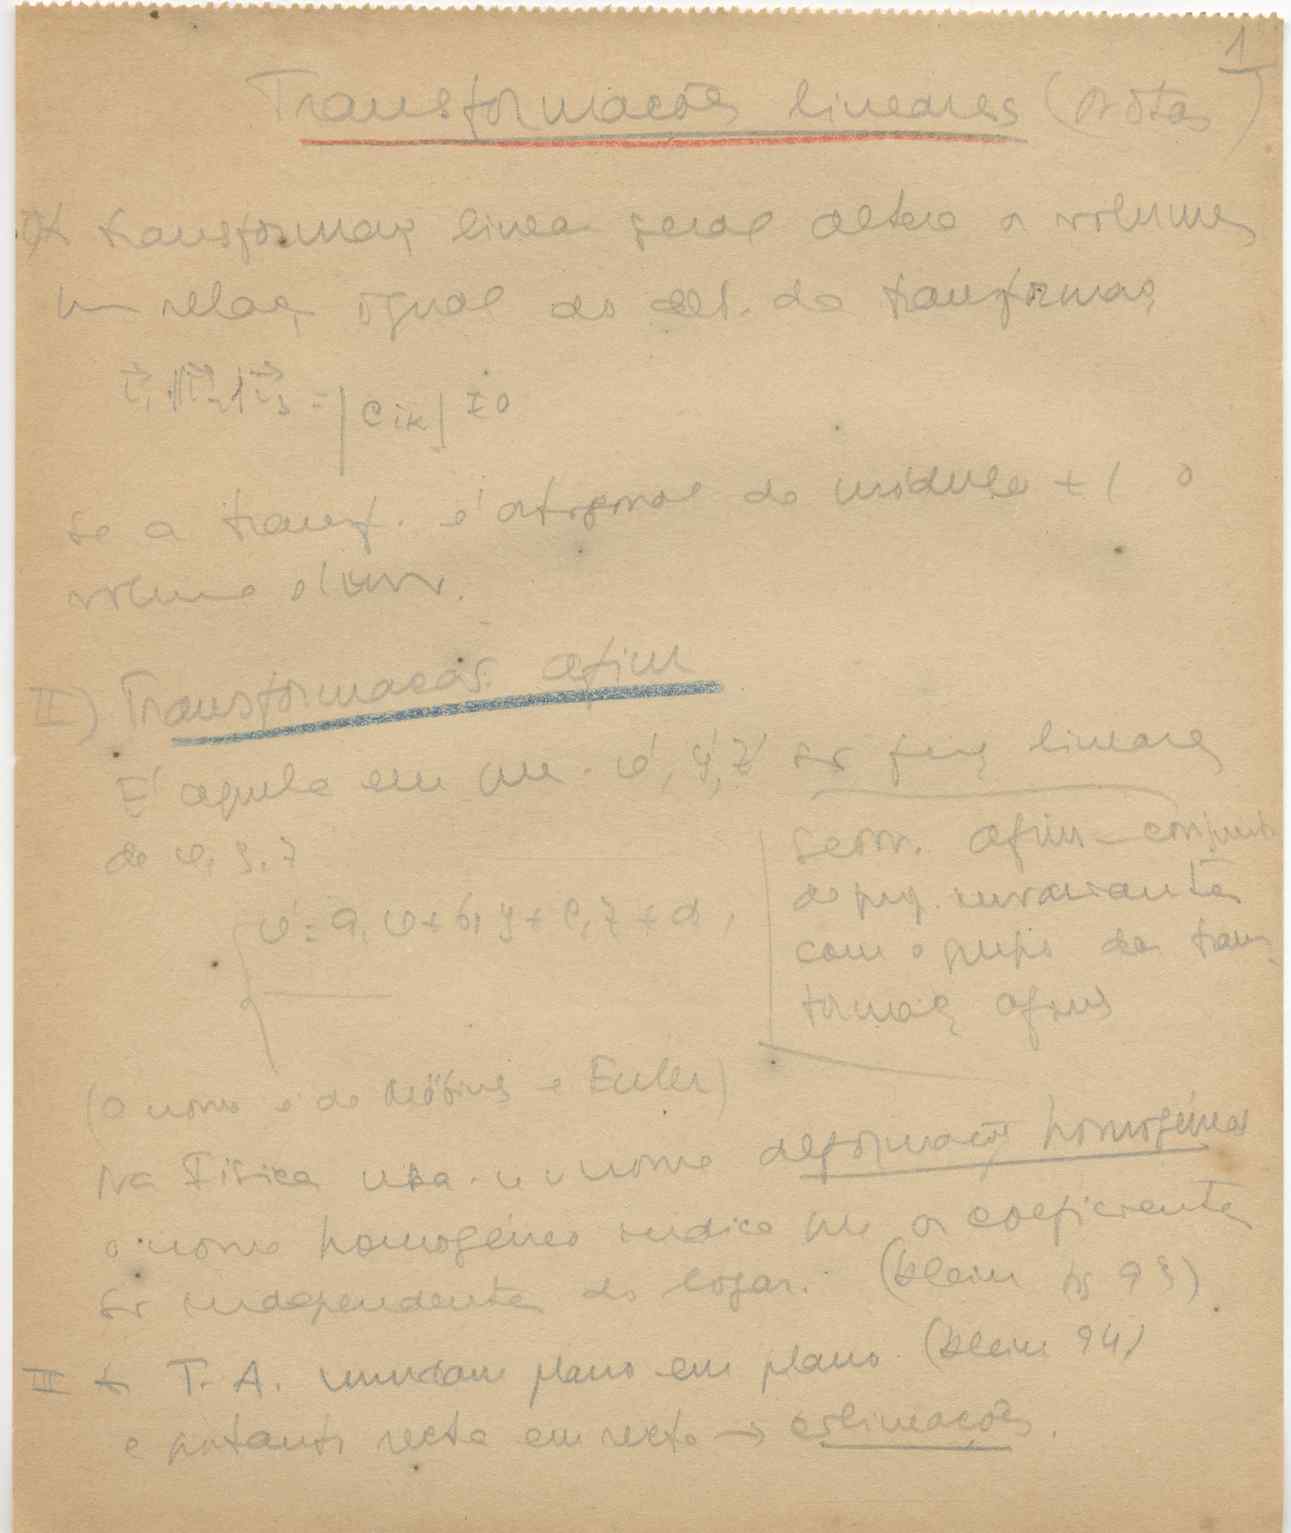 1
Transformações lineares (Notas)
I) A transformaç linear geral altera os volumes
na relaç igual ao det. da transformaç
= |c ik| ≠ 0
Se a transf. é ortogonal de módulo +1 o
volume é
II) Transformaçãos afim
É aquela em que x', y', z' são funç lineares
de x, y, z
x' = a, x + b, y + c, z + d,
Geom. afim – conjunto
de prop. invariantes
com o grupo das trans-
formaçõ afins
(O nome é de Möbius e Euler)
Na Física usa-se o nome deformação homogénea
o nome homogéneo indica que os coeficientes
são independentes do logar. (Klein pg 93)
III As T. A. mudam plano em plano (Klein 94)
e portanto recta em recta → colineações.